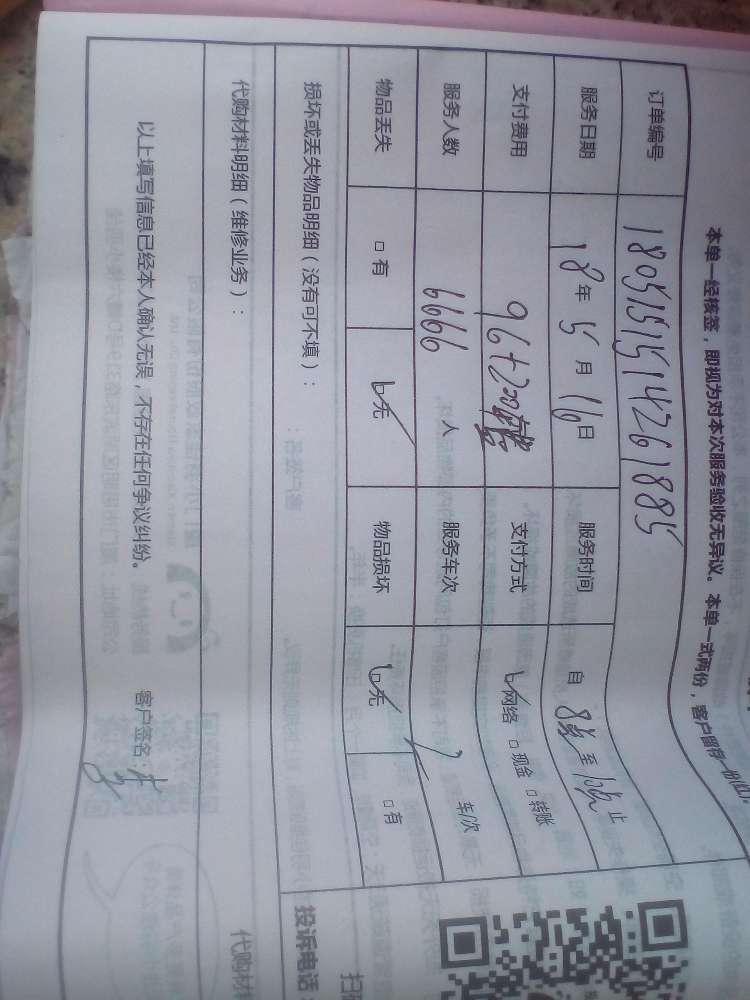 本单一经核签，即视为对本次服务验收无异议。本单一式两份，客户留存一份(红)，
订单编号 180515151426 1885
服务日期 18年5月16日 服务时间 自 8点 至 10点 止
支付费用 96+20 支付方式 ☑网络 □现金 □转账
服务人数 6666 人 服务车次 车/次
物品丢失 □有 ☑无 物品损坏 ☑无 □有
损坏或丢失物品明细（没有可不填）：
代购材料明细（维修业务）： 代购材料
以上填写信息已经本人确认无误，不存在任何争议纠纷。 客户签名：
投诉电话：